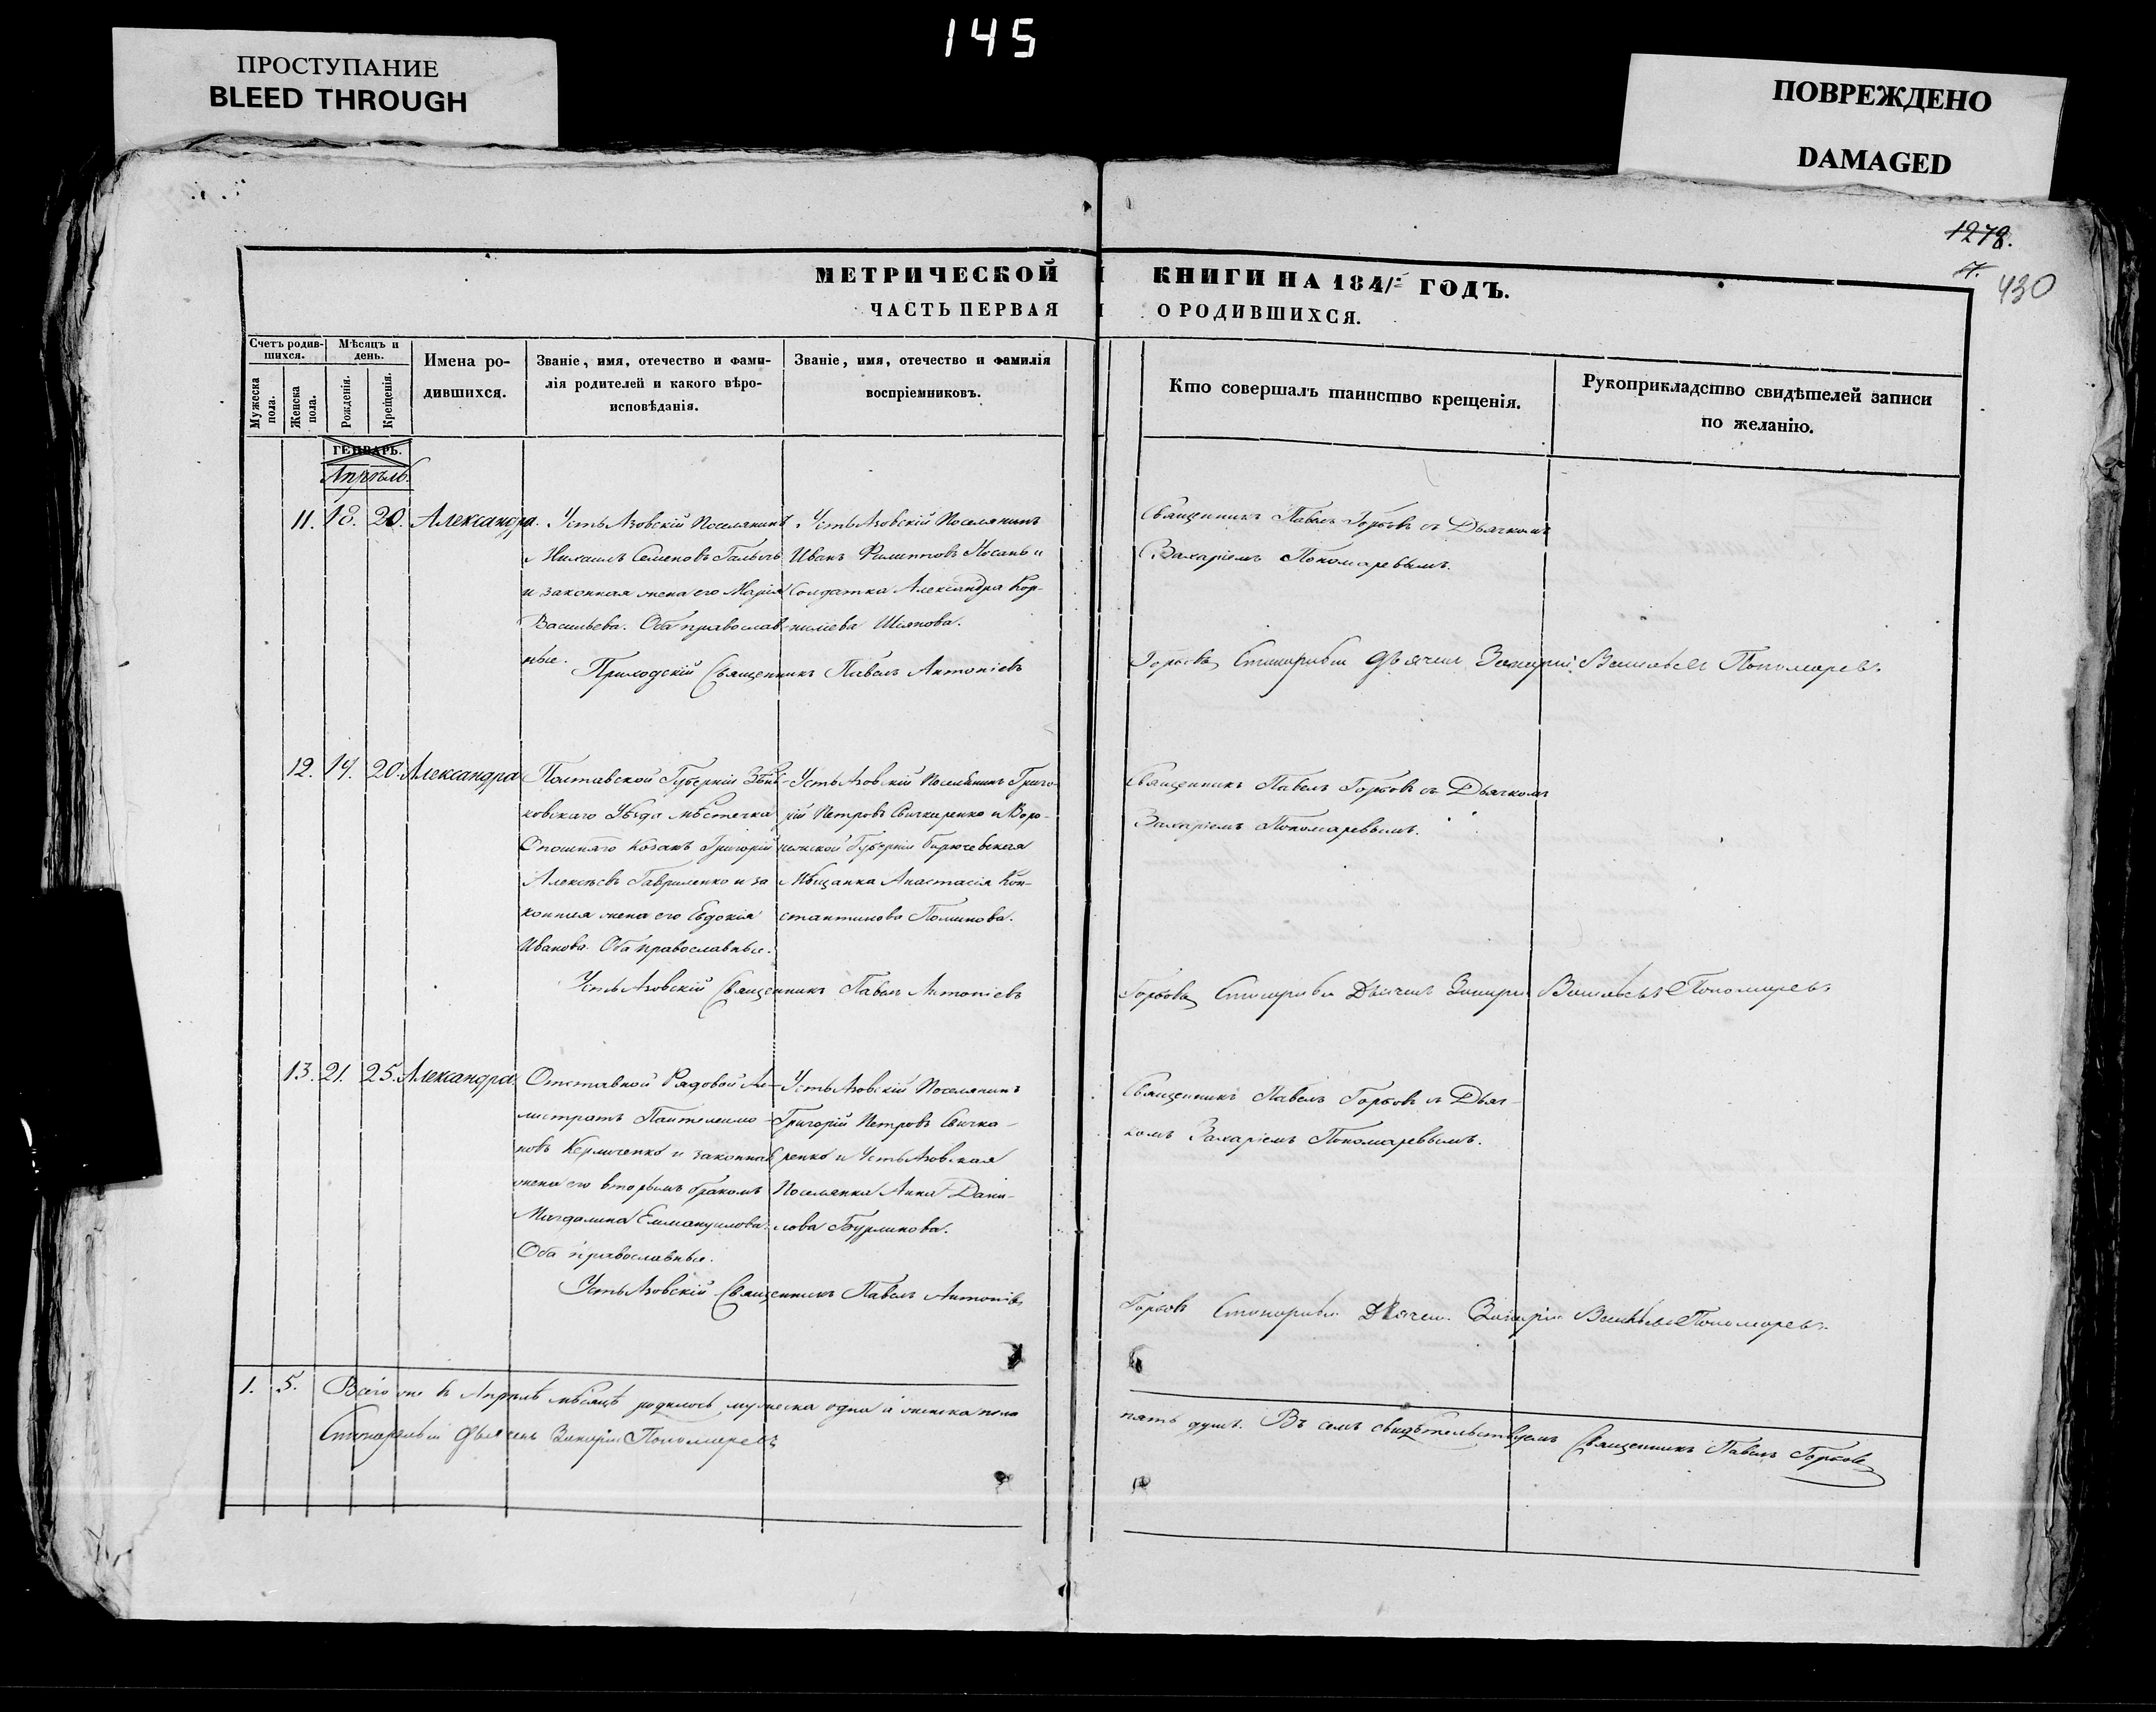 145
ПРОСТУПАНИЕ
BLEED THROUGH
ПОВРЕЖДЕНО
DAMAGED
1278.
430
МЕТРИЧЕСКОЙ КНИГИ НА 1841 ГОДЪ.
ЧАСТЬ ПЕРВАЯ О РОДИВШИХСЯ.
Счетъ родив-
шихся.
Мужеска
пола.
Женска
пола.
Мѣсяцъ и
день.
Рожденія.
Крещенія.
Имена ро-
дившихся.
Званіе, имя, отечество и фами-
лія родителей и какого вѣро-
исповѣданія.
Званіе, имя, отечество и фамилія
воспріемниковъ.
Кто совершалъ таинство крещенія.
Рукоприкладство свидѣтелей записи
по желанію.
ГЕНВАРЬ.
Апрѣль.
11. 18. 20. Александра.
Усть Азовскій Поселянинъ
Михаилъ Семеновъ
и законная жена его Марія
Васильева. Оба православ-
ные.
Усть Азовскій Поселянинъ
Иванъ Филиповъ Носань и
Солдатка Александра Кор-
нилиева
Священникъ Павелъ Горбовъ съ Дьячкомъ
Захаріемъ Пономаревымъ.
Приходскій Священникъ Павелъ Антоніевъ
Горбовъ Дьячекъ Захарій Васильевъ Пономаревъ
12. 20. Александра
Полтавской Губерніи Зѣнь-
ковскаго Уѣзда мѣстечка
Опошняго Козакъ Григорій
Алексѣевъ Гавриленко и за
конная жена его Евдокія
Иванова. Оба православные.
Усть Азовскій Поселянинъ Григо-
рій Петровъ Свичкаренко и Воро-
нежской Губерніи Бирючевская
Мѣщанка Анастасія Кон-
стантинова
Священникъ Павелъ Горбовъ съ Дьячкомъ
Захаріемъ Пономаревымъ.
Усть Азовскій Священникъ Павелъ Антоніевъ
Горбовъ Дьячекъ Захарій Васильевъ Пономаревъ
13. 21. 25. Александра.
Отставной Рядовой
Пантелеимо-
новъ и законная
жена его вторымъ бракомъ
Магдалина Еммануилова.
Оба православные.
Усть Азовскій Поселянинъ
Григорій Петровъ Свичка-
ренко и Усть Азовская
Поселянка Анна Дани-
лова Бурликова.
Священникъ Павелъ Горбовъ съ Дьяч-
комъ Захаріемъ Пономаревымъ.
Усть Азовскій Священникъ Павелъ Антоніевъ
Горбовъ Дьячекъ Захарій Васильевъ Пономаревъ
1. 5. Всего въ Апрѣлѣ мѣсяцѣ родилось мужеска одна а женска пола
пять душъ. Въ семъ свидѣтельствуемъ Священникъ Павелъ Горбовъ
Дьячекъ Захарій Пономаревъ